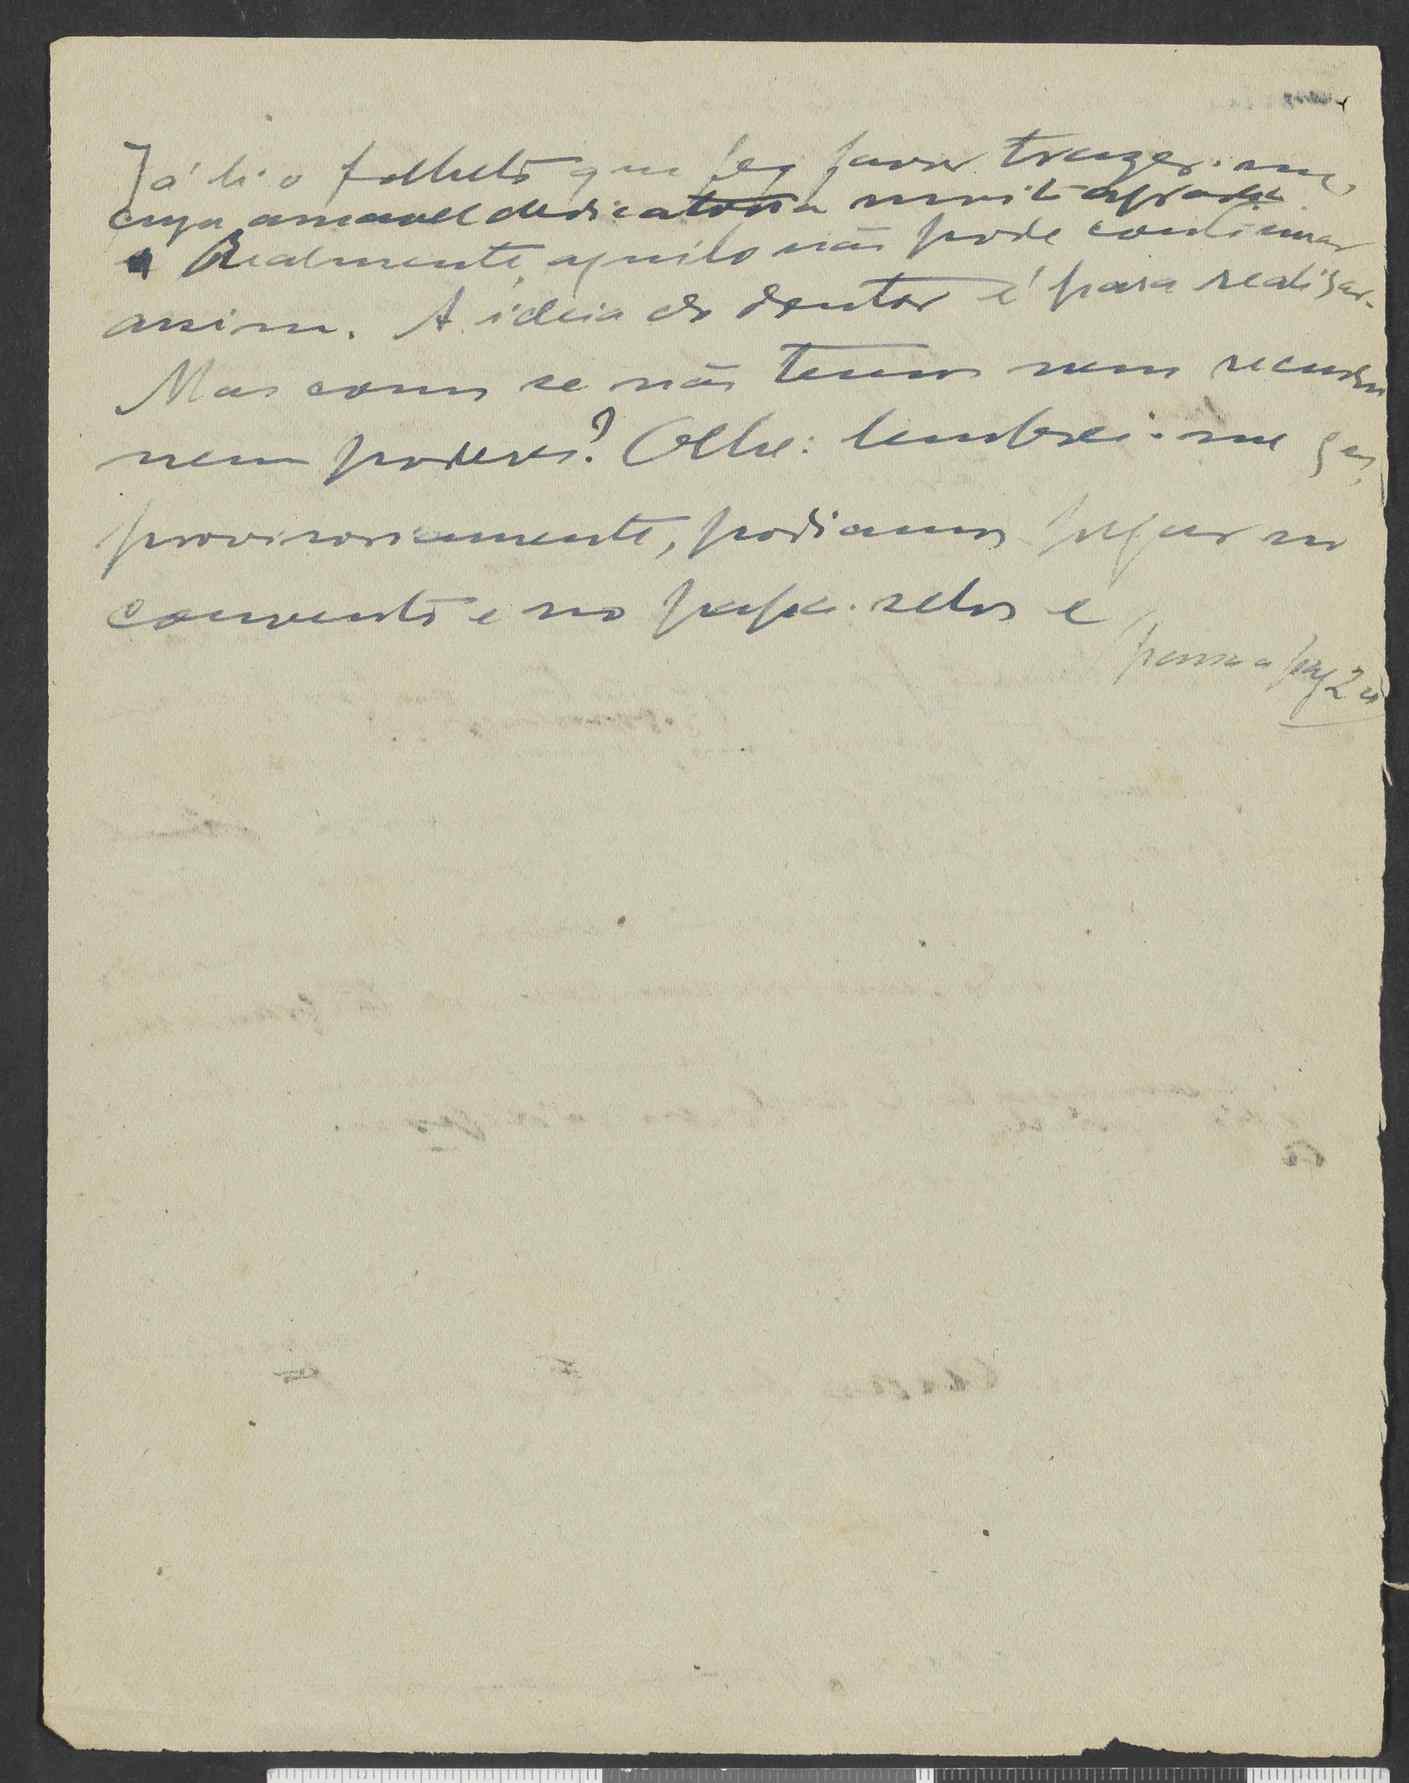 Já li o folheto que fez favor trazer-me,
cuja amavel dedicatoria muito agradeço
Realmente, aquilo não pode continuar
assim. A ideia do doutor é para realisar.
Mas como se não temos nem recursos
nem poderes? Olhe: lembrei-me que,
provisoriamente, podiamos pegar no
convento e no papa-selos e
passa a pag 2